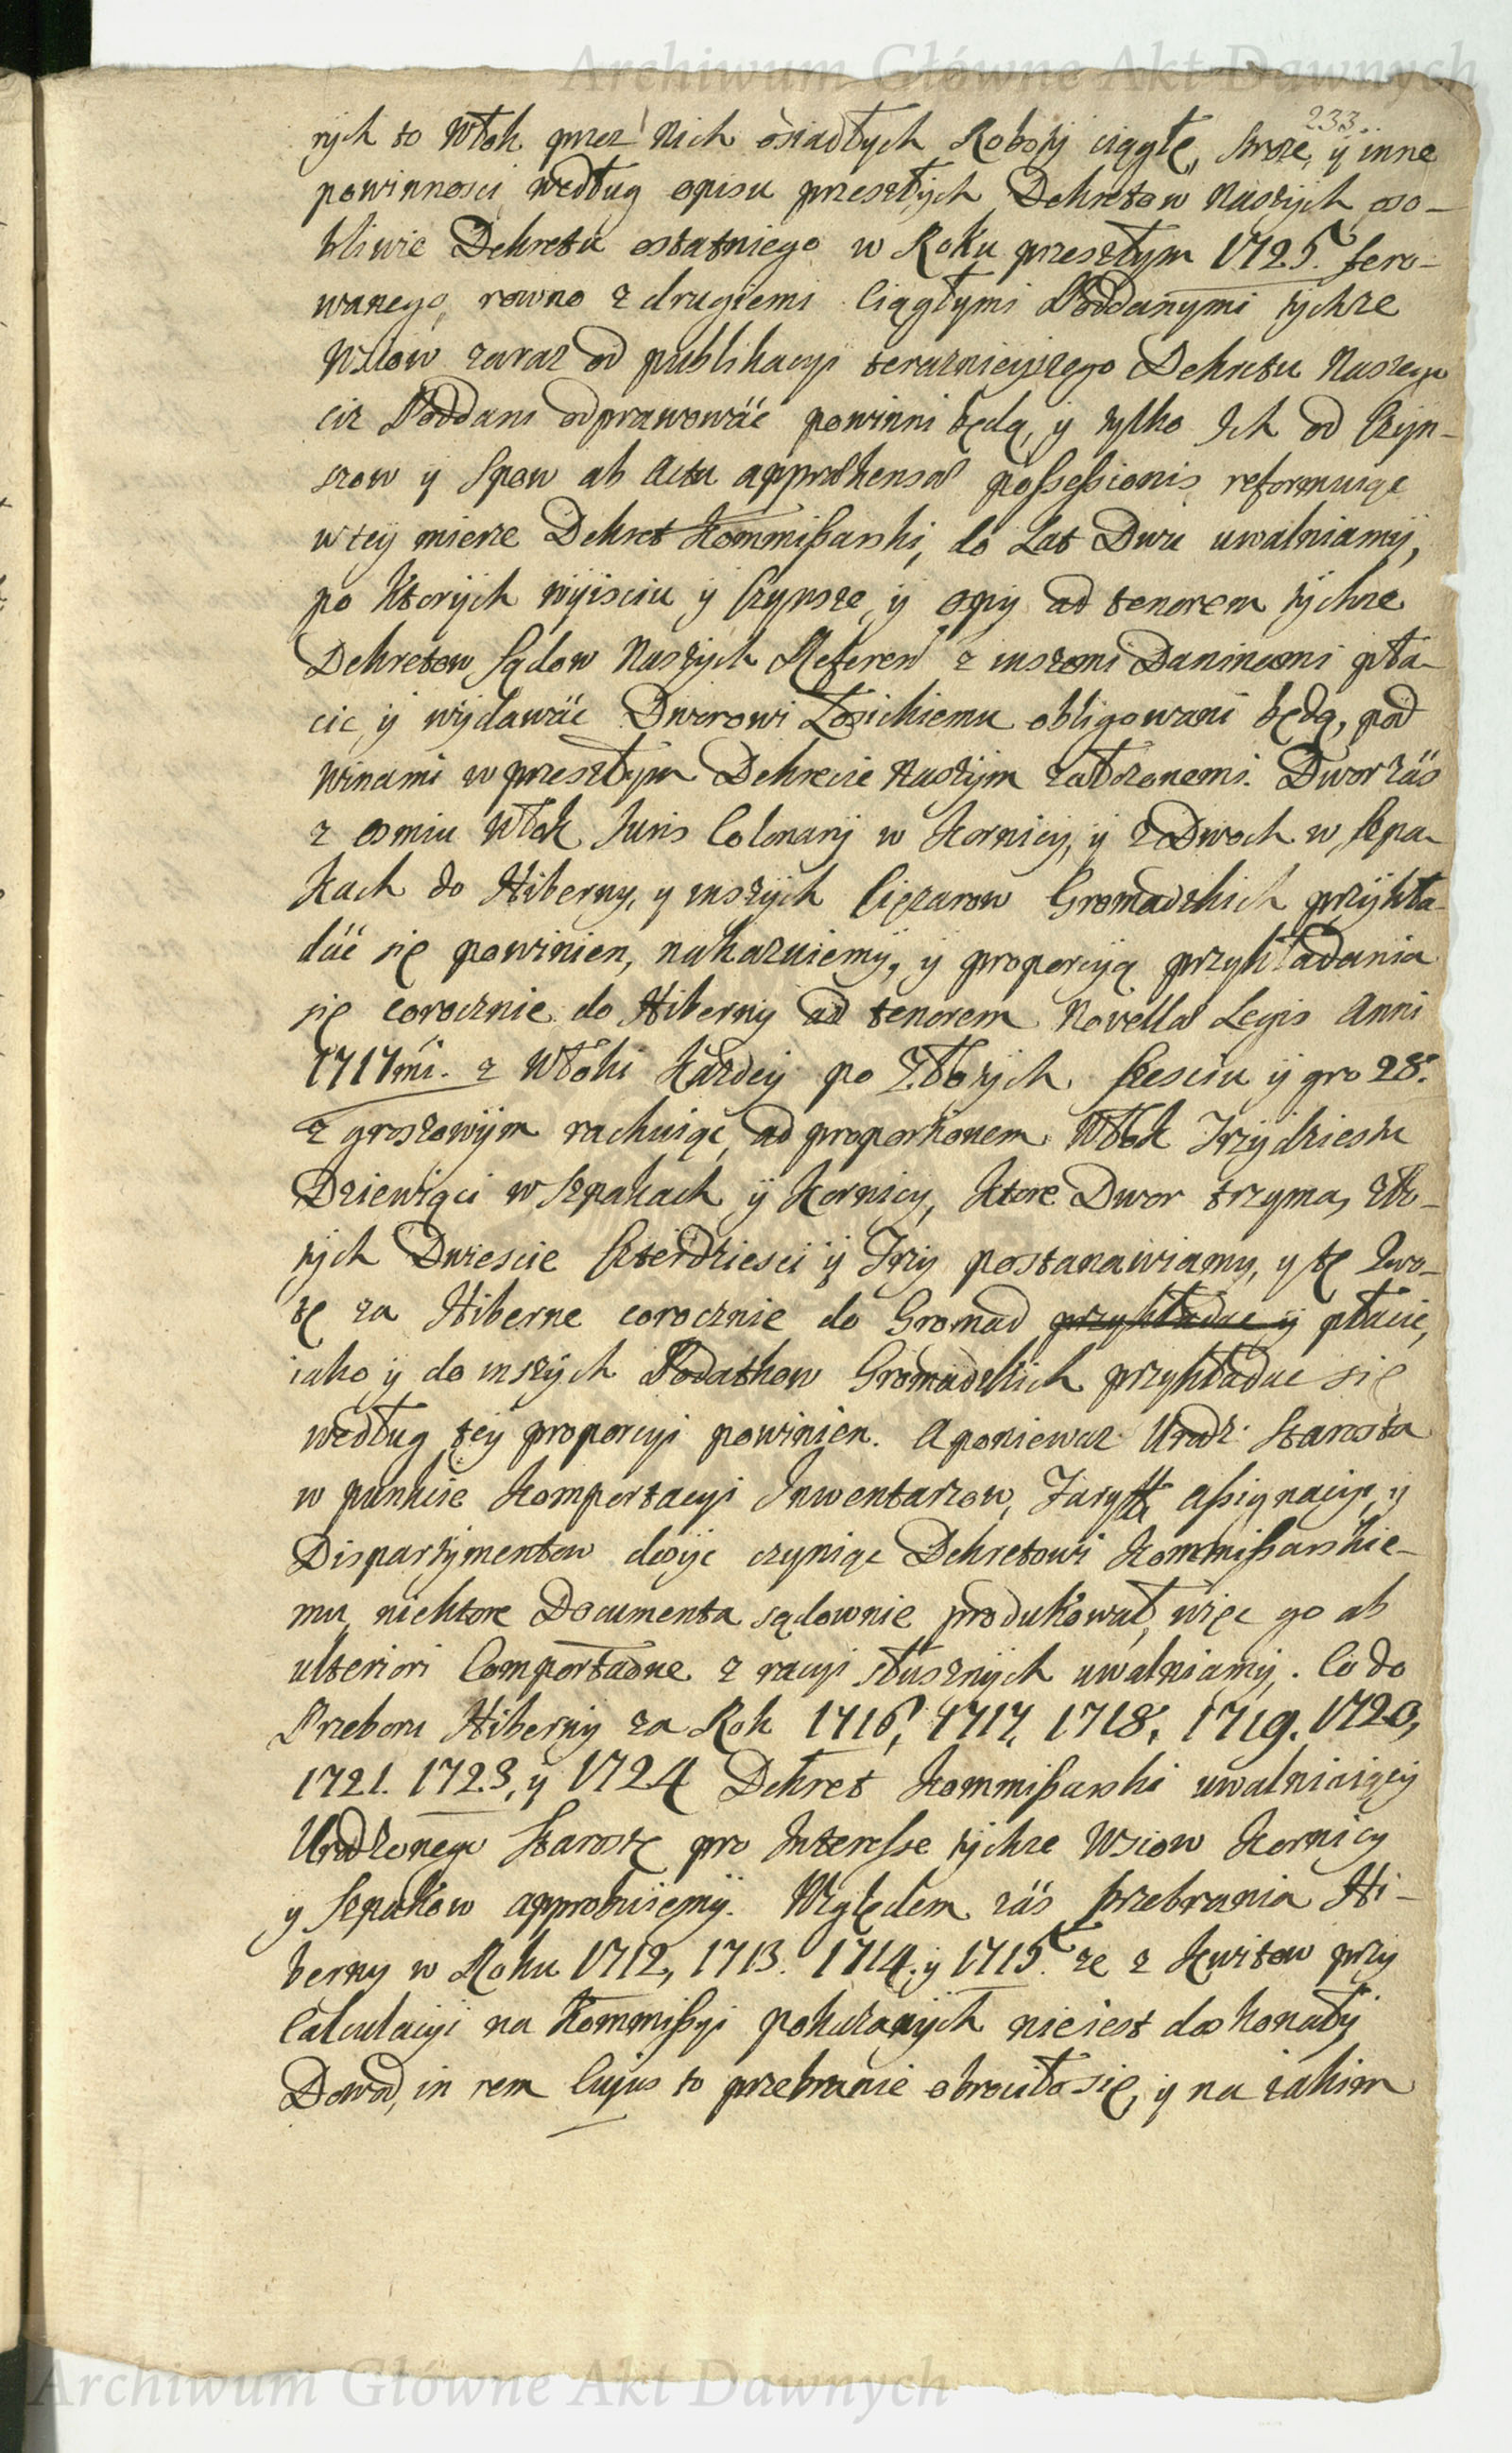 Archiwum Główne Akt Dawnych
233
rych to Włok przez Nich osiadłych Roboty ciągłe, stroże, y inne
powinnosci według opisu przeszłych Dekretow Naszych oso-
bliwie Dekretu ostatniego w Roku przeszłym 1725. fero-
wanego, rowno z drugiemi Ciągłymi Poddanymi tychze
Wsiow zaraz od publikacyi teraznieyszego Dekretu Naszego
ciz Poddani odprawowäć powinni będą, y tylko Ich od Czyn-
szow y Spow ab Actu apprehensæ possessionis reformuiąc
w tey mierze Dekret Kommissarski, do Lat Dwu uwalniamy,
po Ktorych wyisciu y Czynsze, y ospy ad tenorem tychze
Dekretow Sądow Naszych Referen z inszemi Daninami pła-
cic, y wydawäć Dworowi Łosickiemu obligowani będą, pod
winami w przeszłym Dekrecie Naszym załozonemi. Dwor zäs
z osmiu Włok Juris Colonary w Kornicy, y z Dwoch w Szpa-
kach do Hiberny, y inszych Cięzarow Gromadzkich przykła-
däć się powinien, nakazuiemy, y proporcyą przykładania
się corocznie do Hiberny ad tenorem Novellæ Legis Anni
1717mi. z Włoki Kazdey po Złotych Szesciu y gro 28.
z groszowym rachuiąc, ad proportionem Włok Trzydziestu
Dziewięci w Szpakach y Kornicy, Ktore Dwor trzyma, zło-
tych Dwiescie Czterdziesci y Trzy postanawiamy, y tę Kwo-
tę za Hiberne corocznie do Gromad przykładac y płacic,
iako y do inszych Podatkow Gromadzkich przykładac się
według tey proporcyi powinien. A poniewaz Urodz: Starosta
w punkcie Komportacyi Inwentarzow, Taryff, Assignacyi, y
Dispartymentow dosyc czyniąc Dekretowi Kommissarskie-
mu, niektore Documenta sądownie produkował, więc go ab
ulteriori Comportatione z racyi słusznych uwalniamy. Co do
Przeboru Hiberny za Rok 1716, 1717, 1718, 1719. 1720,
1721. 1723, y 1724 Dekret Kommissarski uwalniaiący
Urodzonego Starostę pro Interesse tychze Wsiow Kornicy
y Szpakow approbuiemy. Względem zäs przebrania Hi-
berny w Roku 1712, 1713. 1714. y 1715. ze z Kwitow przy
Calculacyi na Kommissyi pokazanych nie iest doskonały
Dowod, in rem Cujus to przebranie obrociło się, y na iakiem
Archiwum Główne Akt Dawnych